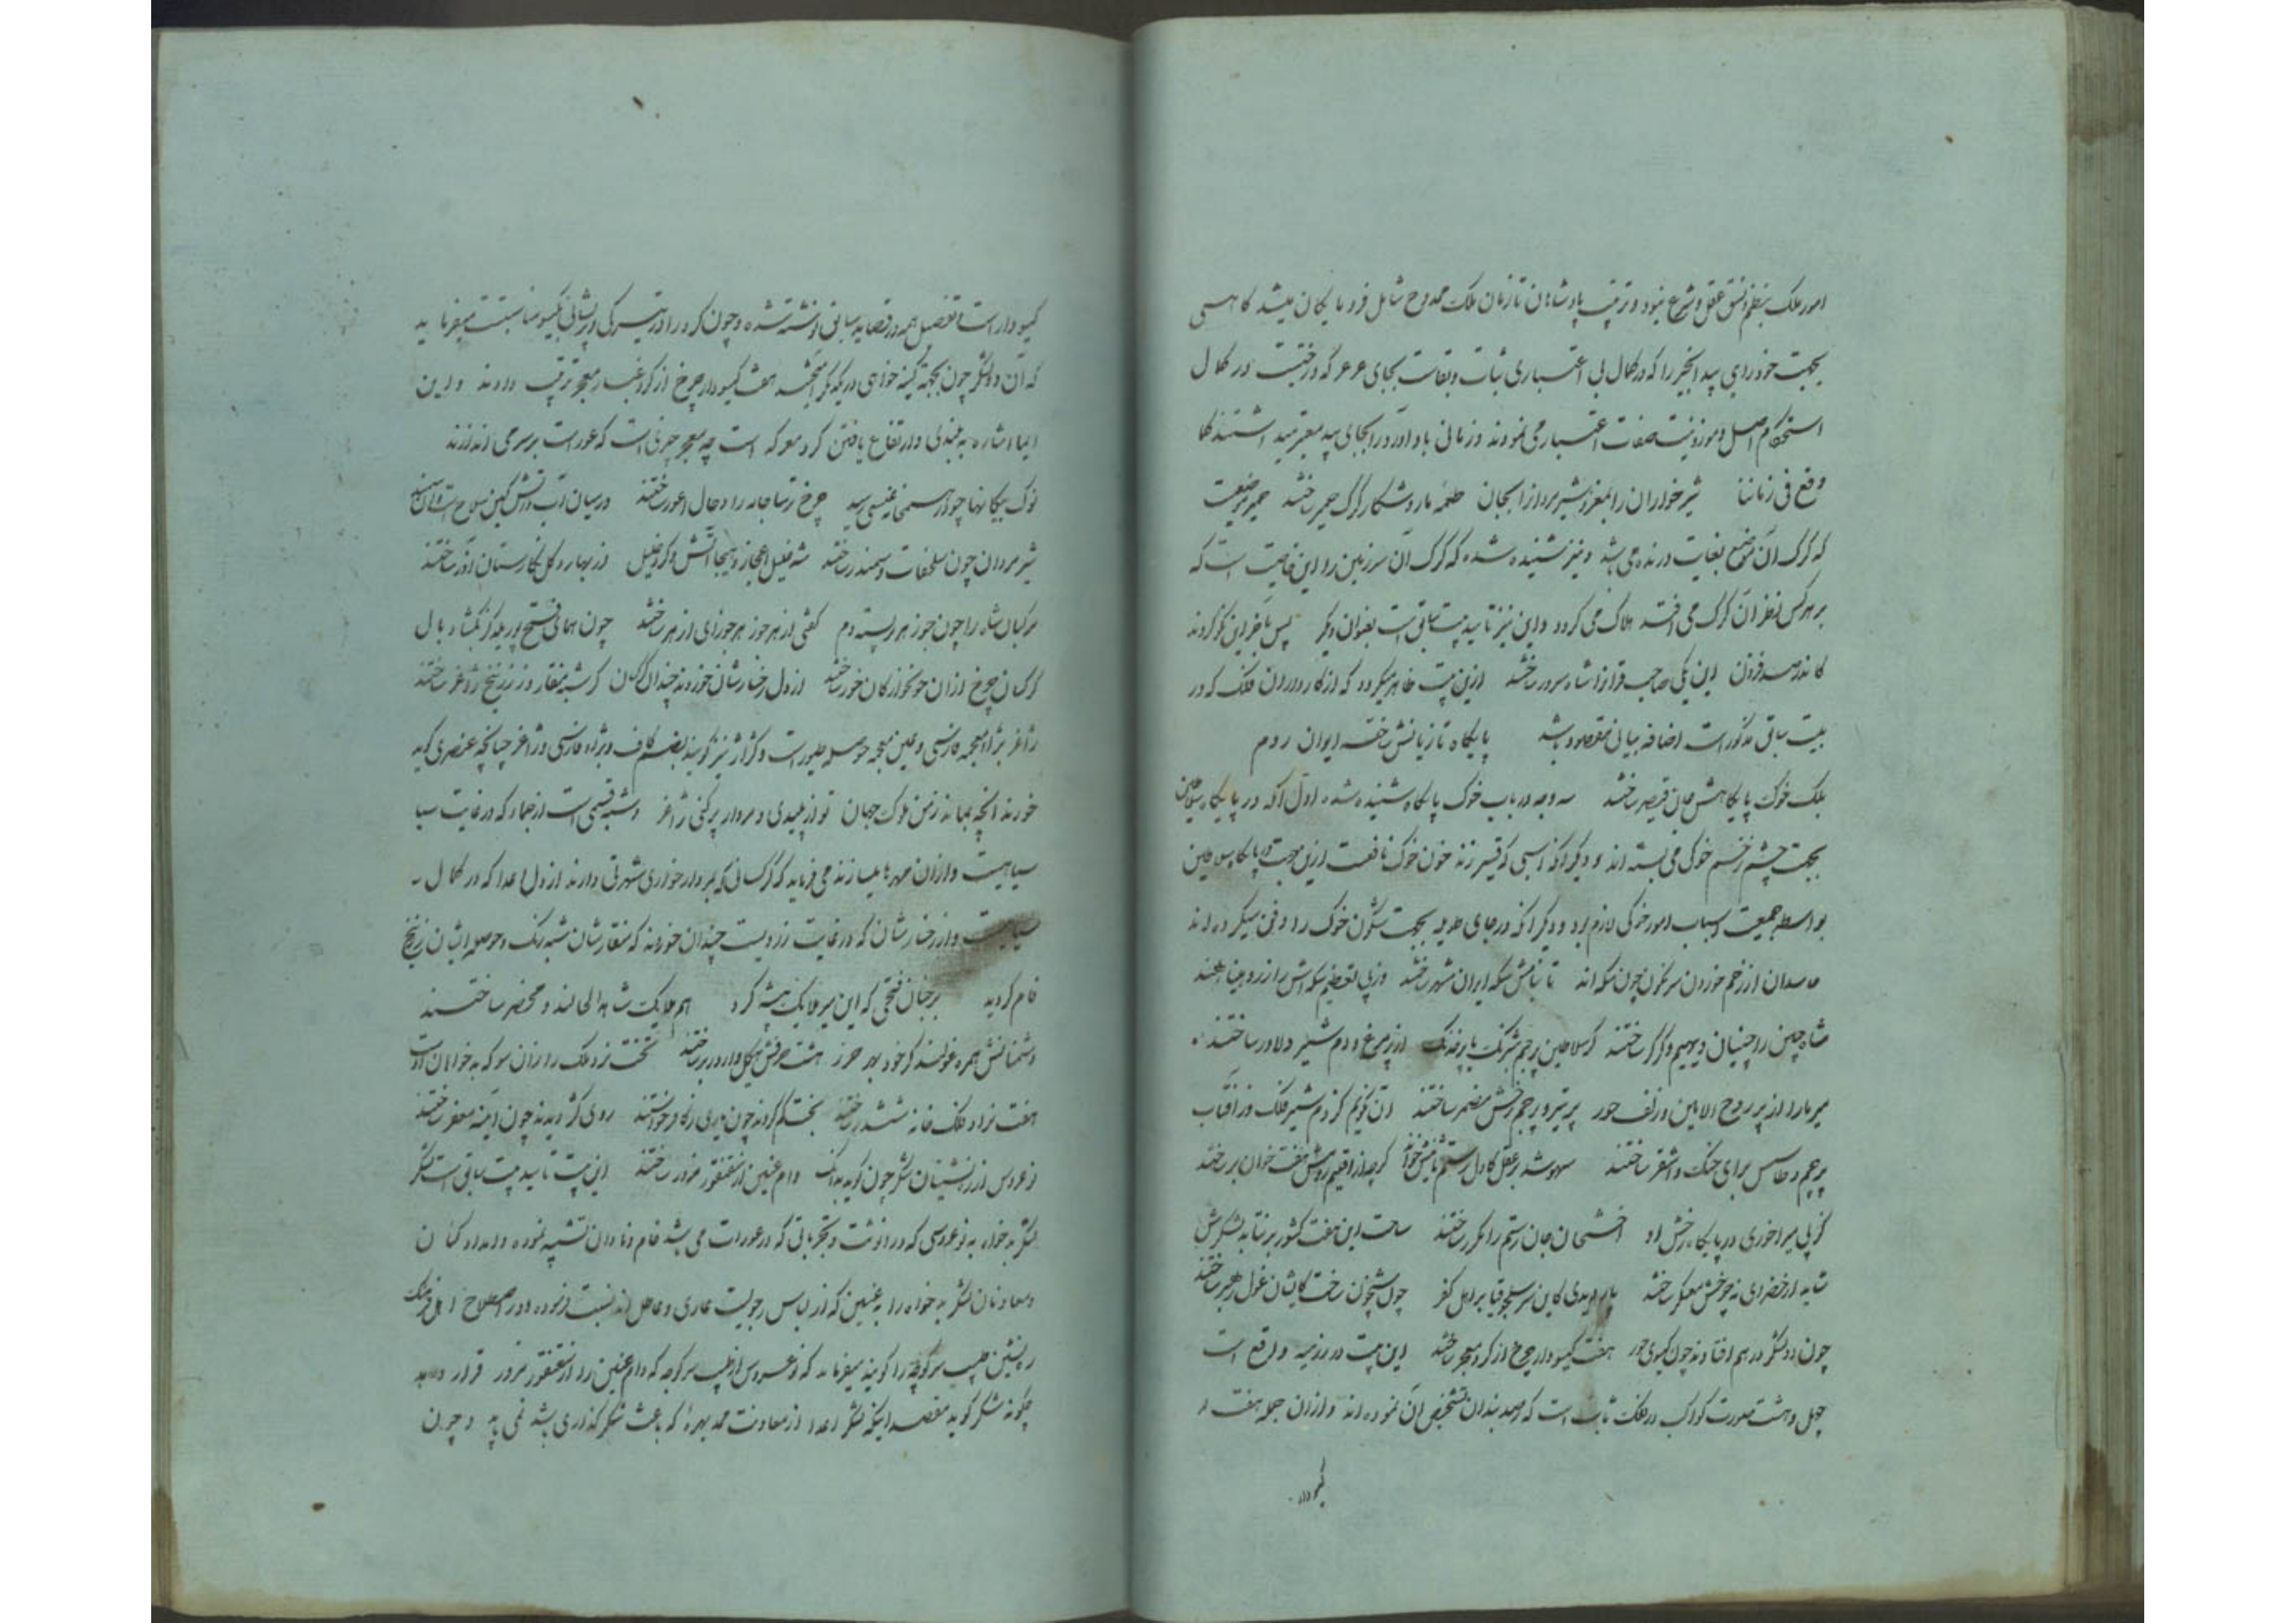 امور ملک بنظم و نسق عقل و شرع نبود و ترتیب پادشاهان تا زمان ملک ممدوح شامل فرومایگان میشد گاهی
بجهت خودرایی بید انجیر را که در کمال بی اعتباری ثبات و بقاست بجای عرعر که درختیست در کمال
استحکام اصل و موزونیت صفات اعتبار می نمودند و زمانی باد آورد را بجای بید معتبر میداشتند کما
وقع فی زماننا شیر خواران را بمغز و شیر مردان را بجان طعمه مار و شکار گرگ حمیر ساختند حمیر موضعیست
که گرگ آن موضع بغایت درنده می باشد و نیز شنیده شده که گرگ آن سرزمین را این خاصیت است که
بر هر کس نظر آن گرگ می افتد هلاک می گردد و این نیز تأیید بیت سابق است بعنوان دیگر پس بآخر این کو کردند
کاندر صد قران این یکی صاحب قران را شاه سرور ساختند ازین بیت ظاهر میگردد که از کارداران فلک که در
بیت سابق مذکور است اضافه بیانی مقصود باشد پایگاه تازیانش ساخته ایوان روم
بلک خوک پایگاهش جان قیصر ساختند سه وجه در باب خوک پایگاه شنیده شده اول آنکه در پایگاه سلاطین
بجهت چشم زخم خوکی می بسته اند و دیگر آنکه اسبی که قیسر زند خون خوک نافعست ازین جهت در پایگاه سلاطین
بواسطه جمعیت اسباب امور خوکی لازم بود و دیگر آنکه در جای طویله بجهت شگون خوک را دفن میکرده اند
حاسدان از زخم خوردن سرنگون چون سکه اند تا بنامش سکه ایران مشهر ساختند وز پی تعظیم سکه اش را از روی میناهند
شاه چین را چینیان دیهیم و گرگر ساختند گر سلاطین پرچم شبرنگ یا پر خدنگ از پر مرغ و دم شیر دلاور ساختند
میر ما را از پر روح الامین وز زلف حور پر تیر و پرچم رخش مضمر ساختند آن گویم کز دم شیر فلک وز آفتاب
پرچم و طاس برای خنگ و اشقر ساختند سهو شد بر عقل کاول رستم ثانیش خواند گرچه از اقلیم رومش هفت خوان بر ساختند
کز پی میراخوری در پایگاه رخش او اختسان جان رستم را مکرر ساختند ساحت این هفت کشور برنتابد لشکرش
شاید ار خضرای نه چرخش معسکر ساختند یارب دیدی کاین سر سلجوقیان بر اهل کفر چون شبیخون ساخت کایشان غول رهبر ساختند
چون دو لشکر در هم افتادند چون گیسوی حور هفت گیسودار چرخ از گرد معجر ساختند این بیت در رزمیه واقع است
چهل و هشت صورت کواکب در فلک ثابت است که رصدبندان تشخیص آن نموده اند و از آن جمله هفت
گیسودار
گیسودار است تفصیل همه در قصاید سابق نوشته شده و چون گرد را در تیرگی و پریشانی بگیسو مناسبت میفرماید
که آن دو لشکر چون بجهة کینه خواهی در یکدیگر آمیختند هفت گیسودار چرخ از گرد و غبار معجر ترتیب دادند و این
ایما اشاره به بلندی و ارتفاع یافتن گرد معرکه است چه معجر چیزی است که عورات بر سر می اندازند
نوک پیکانها چو از هم سخا ... رسید چرخ ترسا جامه را دجال اعور ساختند در میان آب و آتش کین سلاح است و آن سمند
شیر مردان چون سلحفات و سمندر ساختند شد خلیل اعجاز و هیجا آتش و گرد خلیل از بهار و گل نگارستان آزر ساختند
مرکبان شاه را چون جوزهر بسته دم گفتی از هر جوزهر جوزای ازهر ساختند چون همای فتح پور یلدگز بگشاد بال
کرکسان چرخ از آن خونخوارگان خور ساختند از دل و رخسارشان خوردند چندان کرکسان کز شبه منقار وز زرنیخ ژاغر ساختند
ژاغر بزای معجمه فارسی و غین معجمه حوصله طیور است و کژار نیز گویند بضم کاف و بزای فارسی و ژاغر چنانچه عنصری گوید
خورند آنچه بماند ز من ملوک جهان تو از پلیدی و مردار پر کنی ژاغر و شبه قسمی است از جماد که در غایت
سیاهیست و از آن مهرها میسازند می فرماید که کرکسان که بمردار خواری شهرتی دارند از دل اعدا که در کمال
سیاهیست و از رخسارشان که در غایت زردیست چندان خوردند که منقارشان شبه رنگ و حوصله ایشان زرنیخ
فام گردید بر چنان فتحی که این میر ملایک پیشه کرد هم ملایک شاهد الحالند و محضر ساختند
دشمنانش همره غولند گر خود بهر حرز هشت حرفش هیکل وار در بر ساختند تخت نرد ملک را زان سو که بدخواهان اوست
هفت نراد فلک خانه مششدر ساختند بختکم کردند چون پاری ز کافر خواستند روی کژ دیدند چون آیینه مغفر ساختند
نوعروس از ره نشینان شکر چون گوید بدانک وام عنین از سقنقور مزور ساختند این بیت تأیید بیت سابق است لشکر
لشکر بدخواه به نوعروسی که در انوثت و تجربایی که در عورات می باشد خام و نادان تشبیه نموده و امدادکنان
و معاونان لشکر بدخواه را به عنین که از لباس رجولیت عاری و عاطل اند نسبت فرموده و در اصطلاح اهل فرهنگ
ره نشین طبیب سر کوچه را گویند میفرماید که نوعروس از طبیب سر کوچه که وام عنین را از سقنقور مزور قرار دهد
چگونه شکر گوید مقصد اینکه لشکر اعدا از معاونت ممد بهره که باعث شکر گذاری باشد نمی یابد و چون